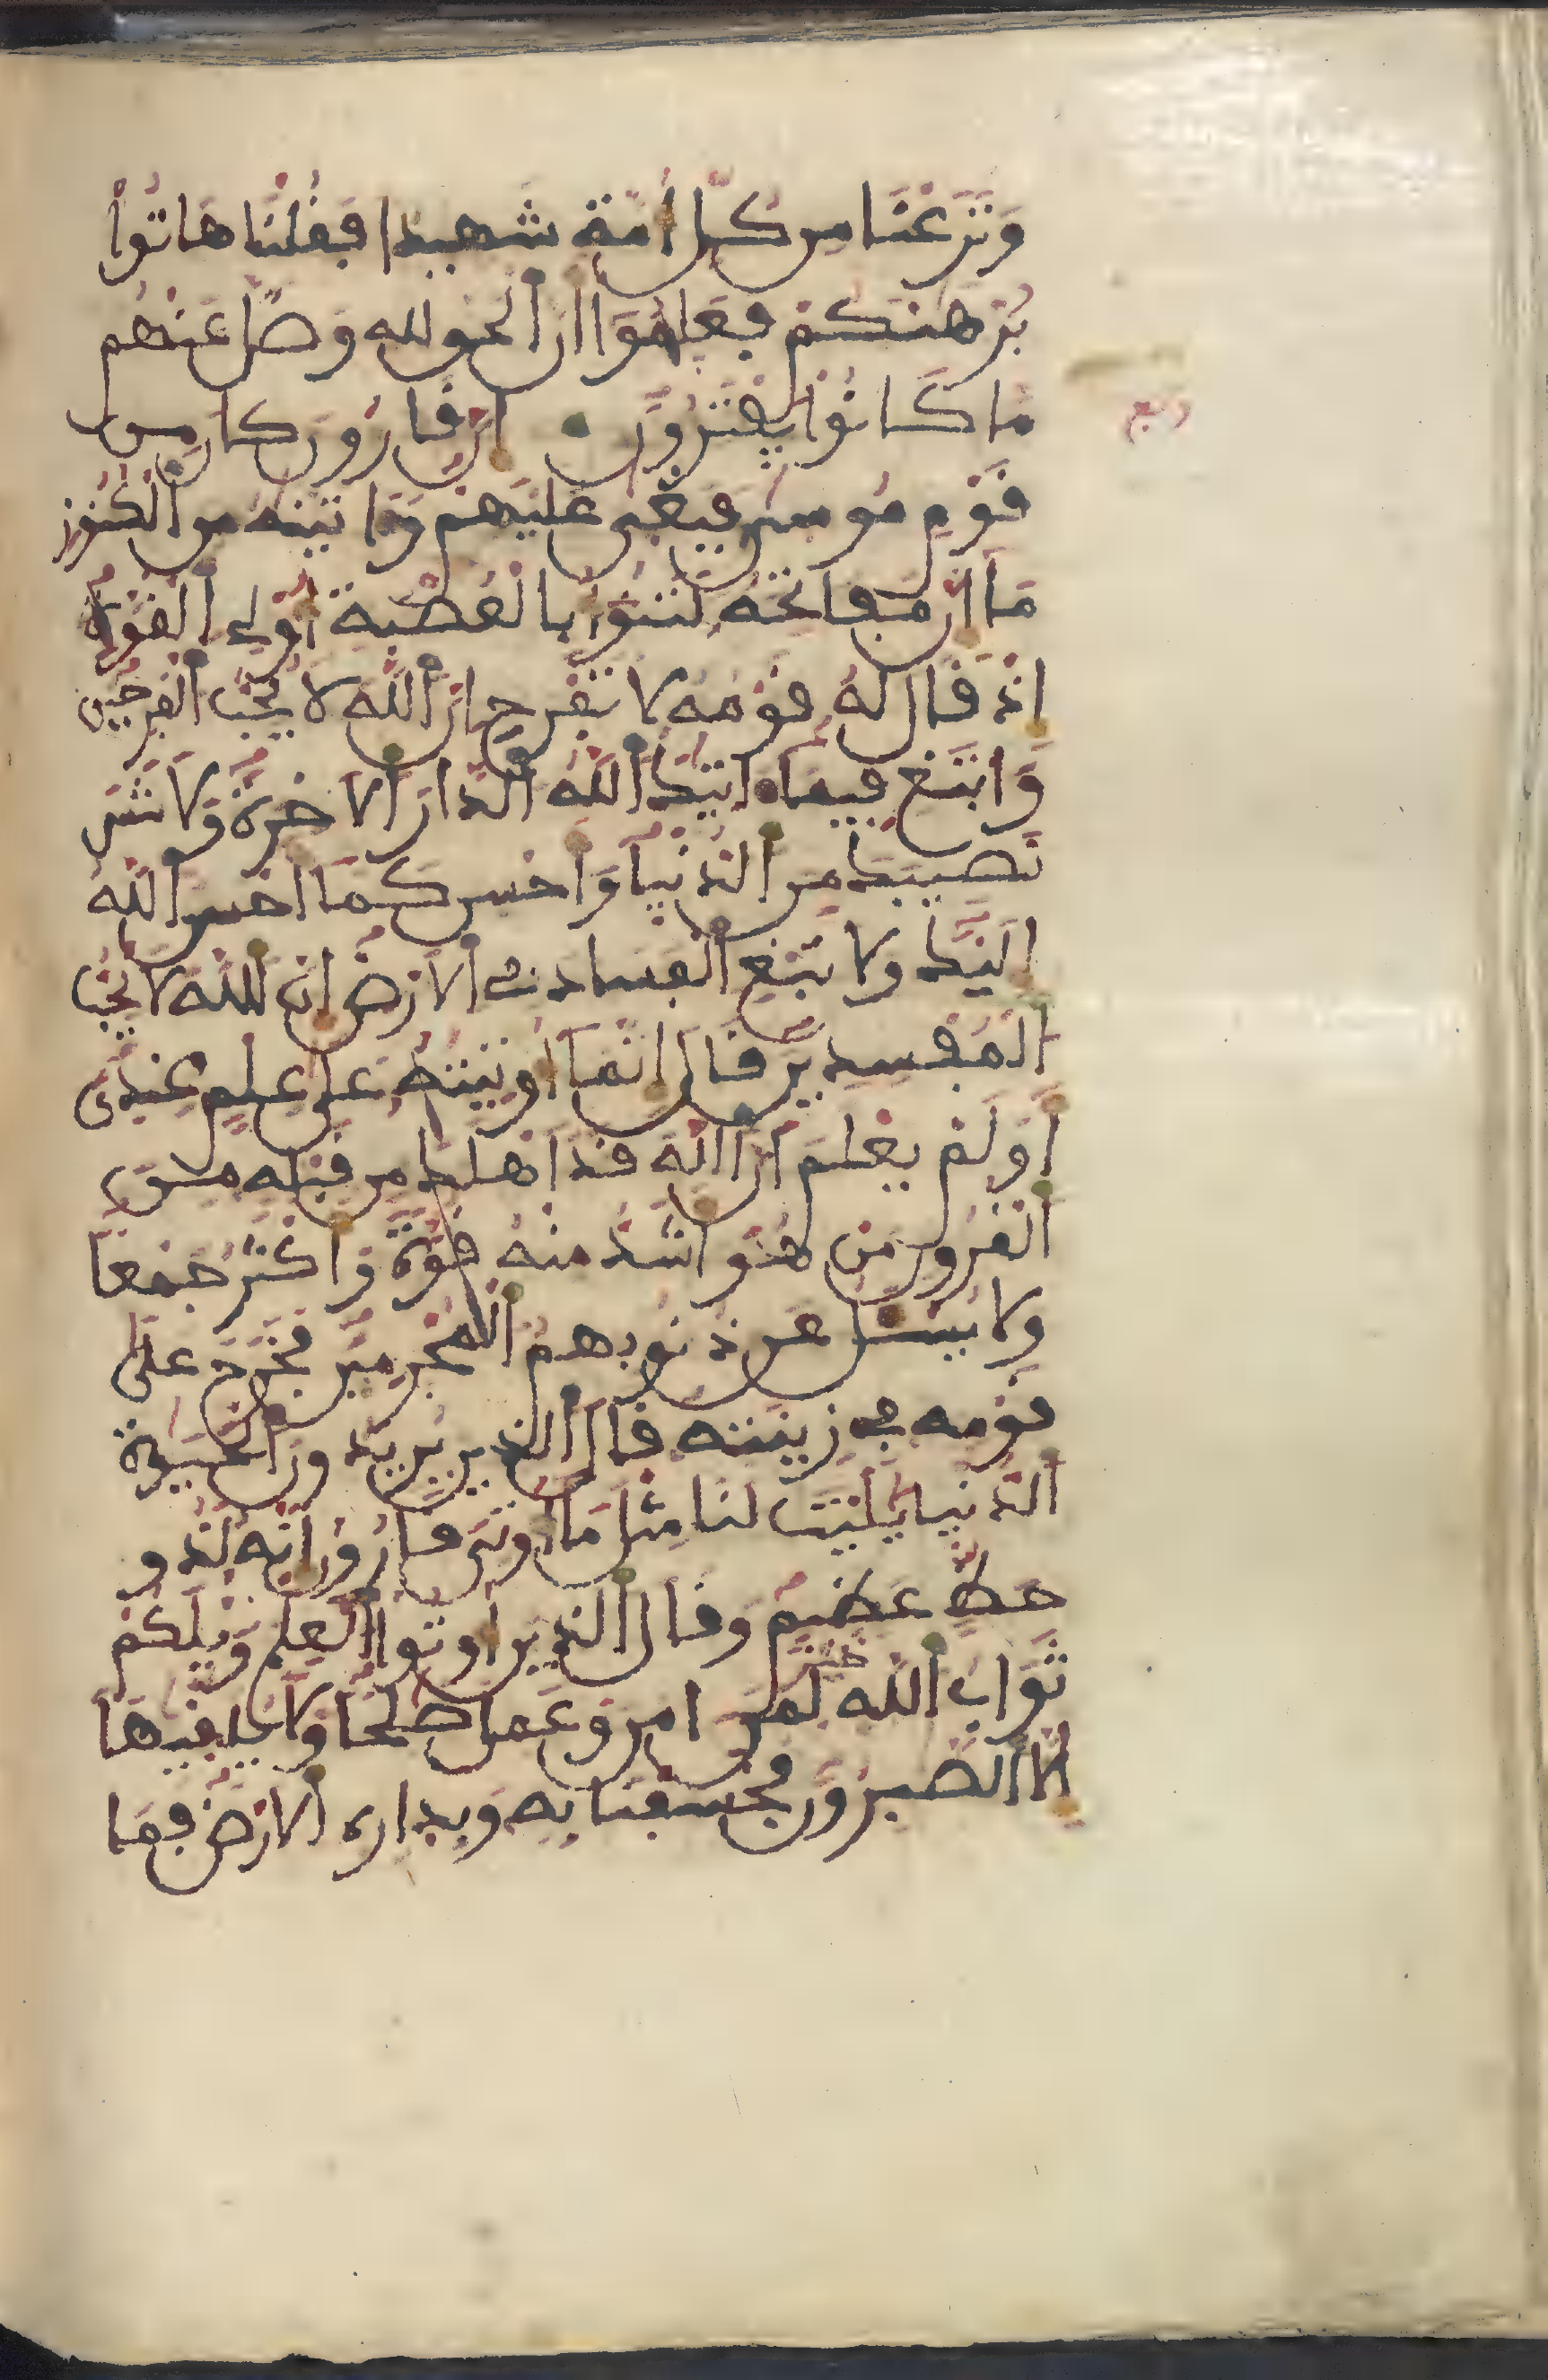 وَنَزَعْنَا مِن كُلِّ أُمَّةٍ شَهِيدًا فَقُلْنَا هَاتُوا
بُرْهَنَكُمْ فَعَلِمُوا أَنَّ الْحَقَّ لِلهِ وَضَلَّ عَنْهُم
مَّا كَانُوا يَفْتَرُونَ إِنَّ قَارُونَ كَانَ مِن
ربع
قَوْمِ مُوسَى فَبَغَى عَلَيْهِمْ وَءَاتَيْنَهُ مِنَ الْكُنُوزِ
مَا إِنَّ مَفَاتِحَهُ لَتَنُوأُ بِالْعُصْبَةِ أُولِي الْقُوَّةِ
إِذْ قَالَ لَهُ قَوْمُهُ لَا تَفْرَحْ إِنَّ اللَّهَ لَا يُحِبُّ الْفَرِحِينَ
وَابْتَغِ فِيمَا ءَاتَيكَ اللَّهُ الدَّارَ الْأَخِرَةَ وَلَا تَنسَ
نَصِيبَكَ مِنَ الدُّنْيَا وَأَحْسِن كَمَا أَحْسَنَ اللَّهُ
إِلَيْكَ وَلَا تَبْغِ الْفَسَادَ فِي الْأَرْضِ إِنَّ اللَّهَ لَا يُحِبُّ
الْمُفْسِدِينَ قَالَ إِنَّمَا أُوتِيتُهُ عَلَى عِلْمٍ عِندِي
أَوَلَمْ يَعْلَمْ أَنَّ اللَّهَ قَدْ أَهْلَكَ مِن قَبْلِهِ مِنَ
الْقُرُونِ مَنْ هُوَ أَشَدُّ مِنْهُ قُوَّةً وَأَكْثَرُ جَمْعًا
وَلَا يُسْـَٔلُ عَن ذُنُوبِهِمُ الْمُجْرِمُونَ فَخَرَجَ عَلَى
قَوْمِهِ فِي زِينَتِهِ قَالَ الَّذِينَ يُرِيدُونَ الْحَيَوةَ
الدُّنْيَا يَلَيْتَ لَنَا مِثْلَ مَا أُوتِيَ قَارُونُ إِنَّهُ لَذُو
حَظٍّ عَظِيمٍ وَقَالَ الَّذِينَ أُوتُوا الْعِلْمَ وَيْلَكُمْ
ثَوَابُ اللَّهِ خَيْرٌ لِّمَنْ ءَامَنَ وَعَمِلَ صَلِحًا وَلَا يُلَقَّيهَا
إِلَّا الصَّبِرُونَ فَخَسَفْنَا بِهِ وَبِدَارِهِ الْأَرْضَ فَمَا